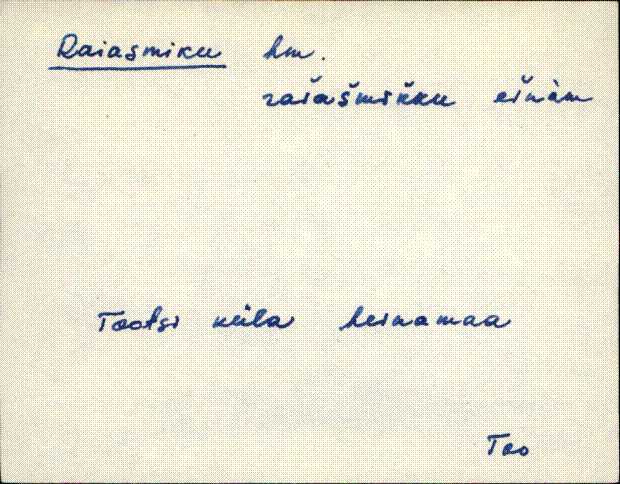 Raiasmiku hm.
raiašmikku einàm
Tootsi küla heinamaa
Too